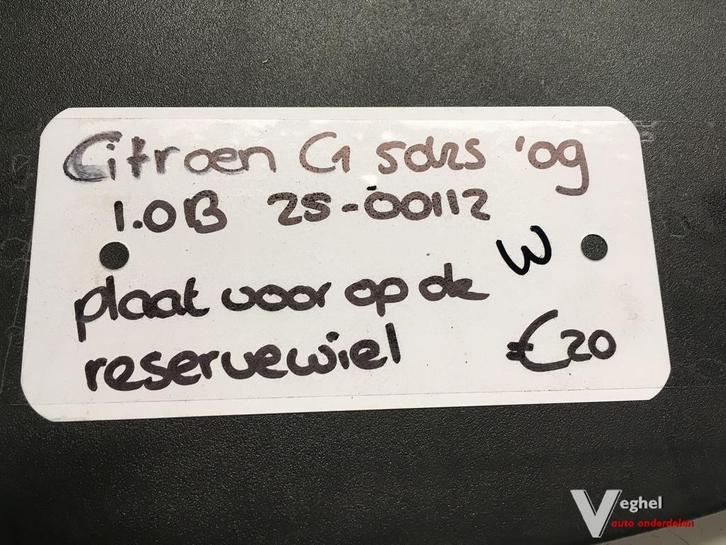 Citroen C1 5drs '09
1.0B 25-00112
W
plaat voor op de
reservewiel €20
Veghel
auto onderdelen